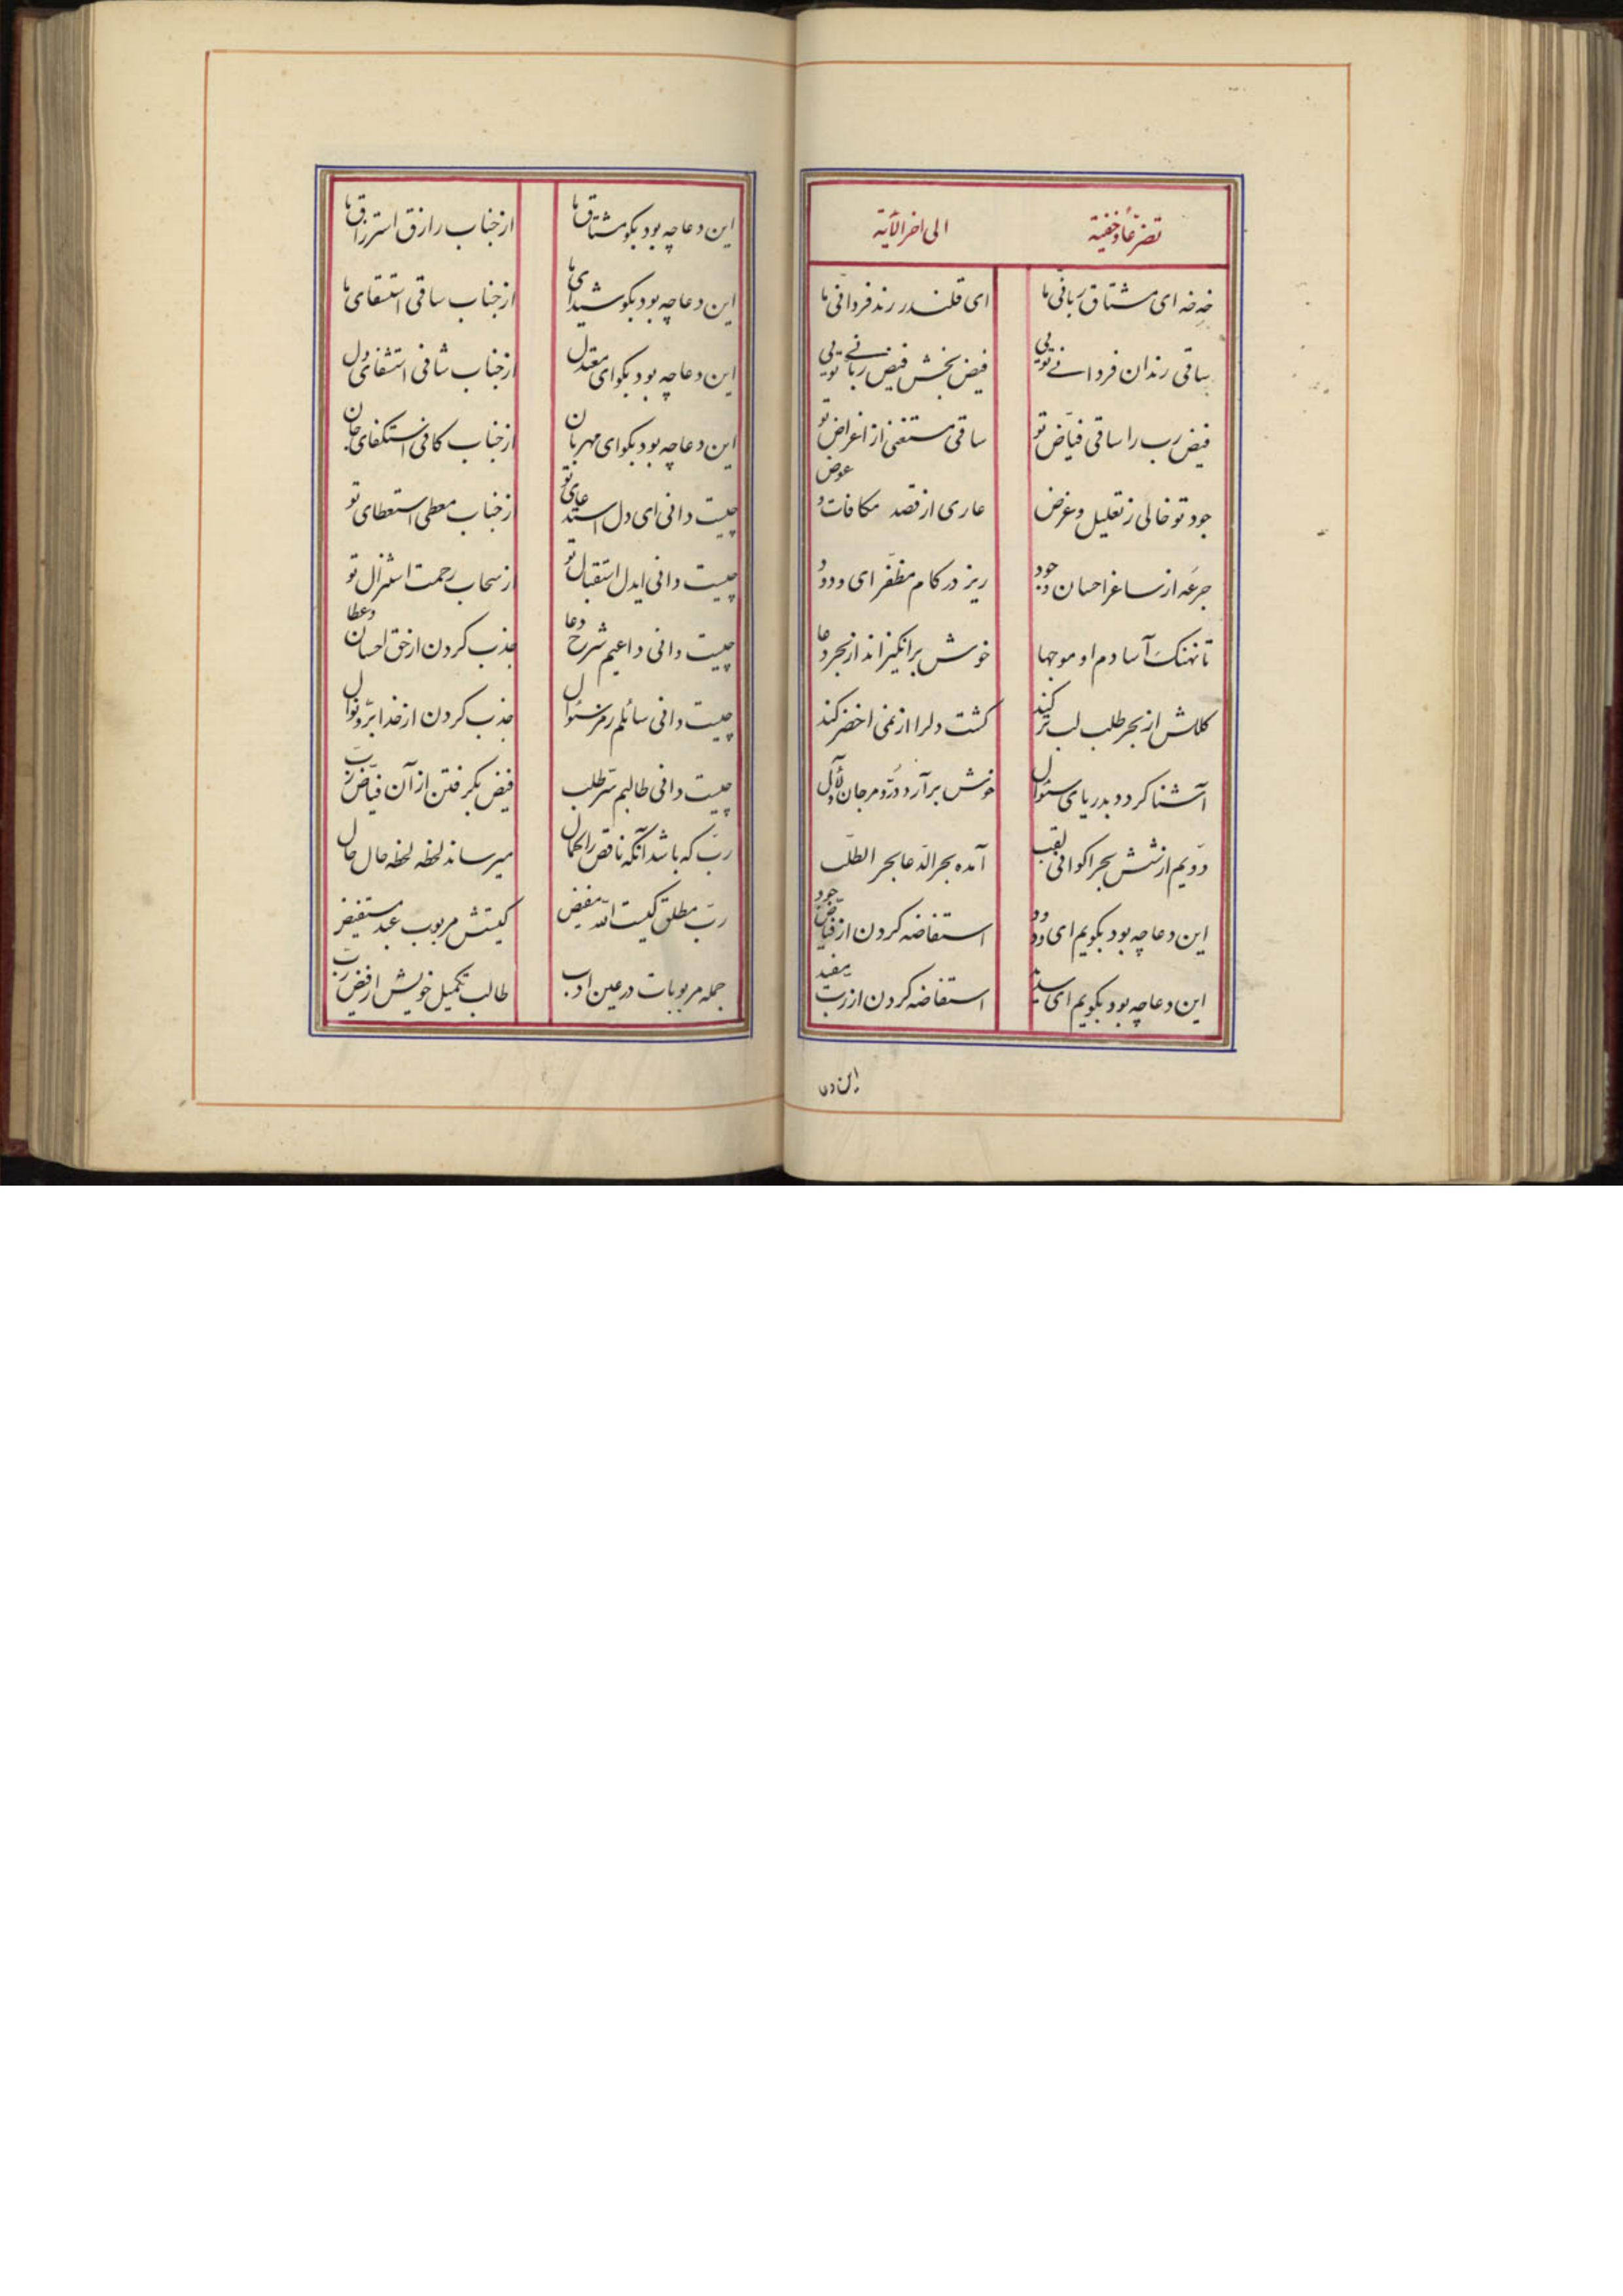 تضرّعاً و خفیة الی اخر الآیة
خه خه ای مشتاق ربانی ما ای قلندر رند فردانی ما
ساقی رندان فردانی تویی فیض بخش فیض ربانی تویی
فیض رب را ساقی فیّاض تو ساقی مستغنی از اعراض تو
جود تو خالی ز تعلیل و غرض عاری از قصد مکافات و عوض
جرعه از ساغر احسان و جود ریز در کام مظفّر ای ودود
تا نهنک آسا دم او موجها خوش برانکیزاند از بحر دعا
کلکش از بحر طلب لب تر کند کشت دلرا از نمی اخضر کند
آشنا کردد بدریای سئوال خوش برآرد درّ و مرجان و لآل
دویم از شش بحر اکوانی لقب آمده بحر الدعا بحر الطلب
این دعا چه بود بکویم ای ودود استفاضه کردن از فیّاض جود
این دعا چه بود بکویم ای استفاضه کردن از ربّ
این دعا
این دعا چه بود بکو مشتاق ما از جناب رازق استرزاق ما
این دعا چه بود بکو شیدای ما از جناب ساقی استسقای ما
این دعا چه بود بکو ای معتدل از جناب شافی استشفای دل
این دعا چه بود بکو ای مهربان از جناب کافی استکفای جان
چیست دانی ای دل استدعای تو از جناب معطی استعطای تو
چیست دانی ایدل استقبال تو از سحاب رحمت استنزال تو
چیست دانی داعیم شرح دعا جذب کردن از حق احسان و عطا
چیست دانی سائلم رمز سئوال جذب کردن از خدا برّ و نوال
چیست دانی طالبم سرّ طلب فیض بکرفتن از آن فیّاض ربّ
ربّ که باشد آنکه ناقص را کمال میرساند لحظه لحظه حال حال
ربّ مطلق کیست الله مفیض کیتش مربوب عبد مستفیض
جمله مربوبات در عین ادب طالب تکمیل خویش از فیض ربّ